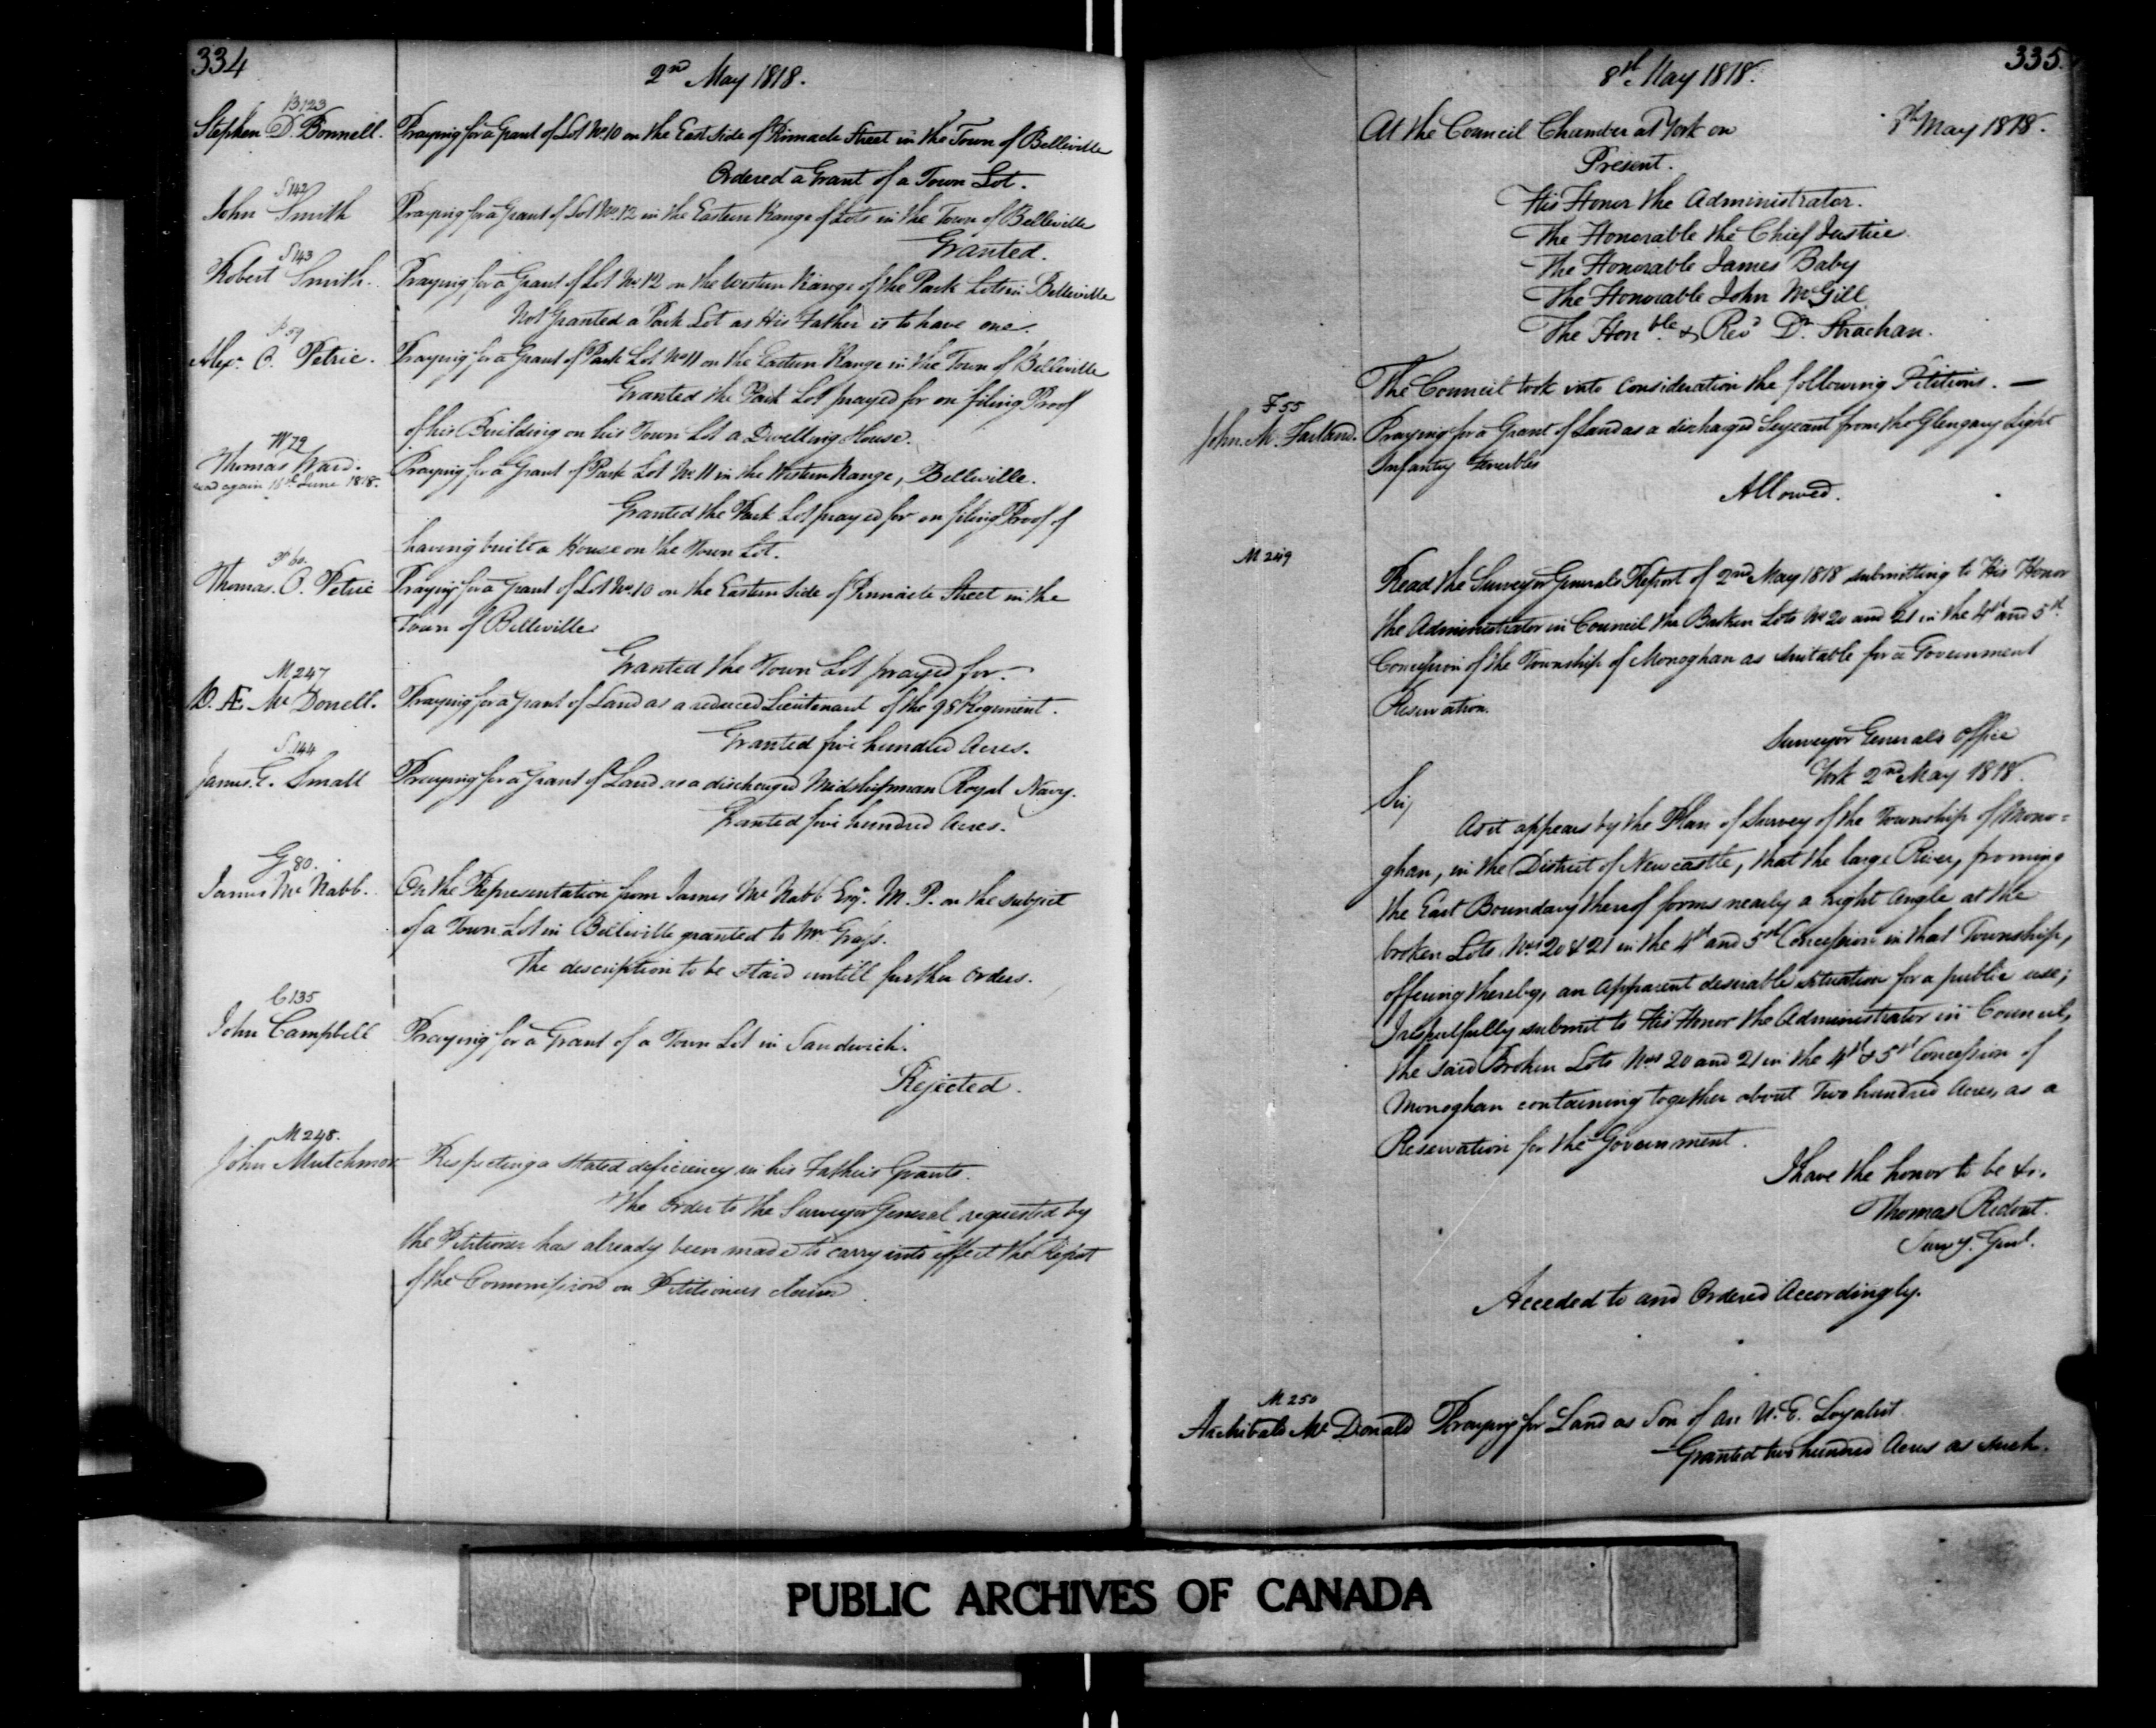 334
2nd May 1818.
B 123
Stephen D. Bonnell. Praying for a Grant of Lot No. 10 on the East side of Pinnacle Street in the Town of Belleville
Ordered a Grant of a Town Lot.
S 142
John Smith Praying for a Grant of Lot No. 12 in the Eastern Range of Lots in the Town of Belleville
Granted.
S 143
Robert Smith. Praying for a Grant of Lot No. 12 on the Western Range of the Park Lots in Belleville
Not Granted a Park Lot as His Father is to have one.
P 59
Alexr. O. Petrie. Praying for a Grant of Park Lot No 11 on the Eastern Range in the Town of Belleville
Granted the Park Lot prayed for on filing Proof
of his Building on his Town Lot a Dwelling House.
W 72
Thomas Ward. Praying for a Grant of Park Lot No. 11 in the Western Range, Belleville.
read again 16th June 1818.
Granted the Park Lot prayed for on filing Proof of
having built a House on the Town Lot.
P 60.
Thomas. O. Petrie Praying for a Grant of Lot No. 10 on the Eastern side of Pinnacle Street in the
Town of Belleville
Granted the Town Lot prayed for.
M 247
D. Æ Mc Donell. Praying for a Grant of Land as a reduced Lieutenant of the 98 Regiment.
Granted five hundred Acres.
S. 144
James. E. Small Praying for a Grant of Land as a discharged Midshipman Royal Navy.
Granted five hundred Acres.
G 80.
James Mc Nabb. On the Representation from James Mc Nabb Esqr. M. P. on the subject
of a Town Lot in Belleville granted to Mr. Grass.
The description to be staid untill further orders.
C 135
John Campbell Praying for a Grant of a Town Lot in Sandwich.
Rejected.
M 248.
John Mutchmor Respecting a stated deficiency in his Father's Grants.
The order to the Surveyor General requested by
the Petitioner has already been made to carry into effect the Report
of the Commission on Petitioners claim.
335.
8th. May 1818.
At the Council Chamber at York on 8th May 1818.
Present.
His Honor the Administrator.
The Honorable the Chief Justice
The Honorable James Baby
The Honorable John McGill
The Honble. & Revd Dr. Strachan.
The Council took into consideration the following Petitions. —
F 55
John. M. Farland. Praying for a Grant of Land as a discharged Serjeant from the Glengary Light
Infantry Fencibles
Allowed.
M 249
Read the Surveyor Generals Report of 2nd May 1818 submitting to His Honor
the Administrator in Council the Broken Lots No 20 and 21 in the 4th and 5th
Concession of the Township of Monoghan as suitable for a Government
Reservation.
Surveyor Generals Office
York 2nd May 1818.
Sir,
As it appears by the Plan of Survey of the Township of Mono=
ghan, in the District of Newcastle, that the large River, froming
the East Boundary thereof forms nearly a right Angle at the
broken Lots Nos 20 & 21 in the 4th and 5th Concession in that Township,
offering thereby, an apparent desirable situation for a public use;
I respectfully submit to His Honor the Administrator in Council,
the said Broken Lots Nos 20 and 21 in the 4th & 5th Concession of
Monoghan containing together about Two hundred Acres, as a
Reservation for the Government.
I have the honor to be &c.
Thomas Ridout.
Survy. Genl.
Acceded to and Ordered Accordingly.
M 250
Archibald Mc Donald Praying for Land as Son of an U. E. Loyalist.
Granted two hundred Acres as such.
PUBLIC ARCHIVES OF CANADA